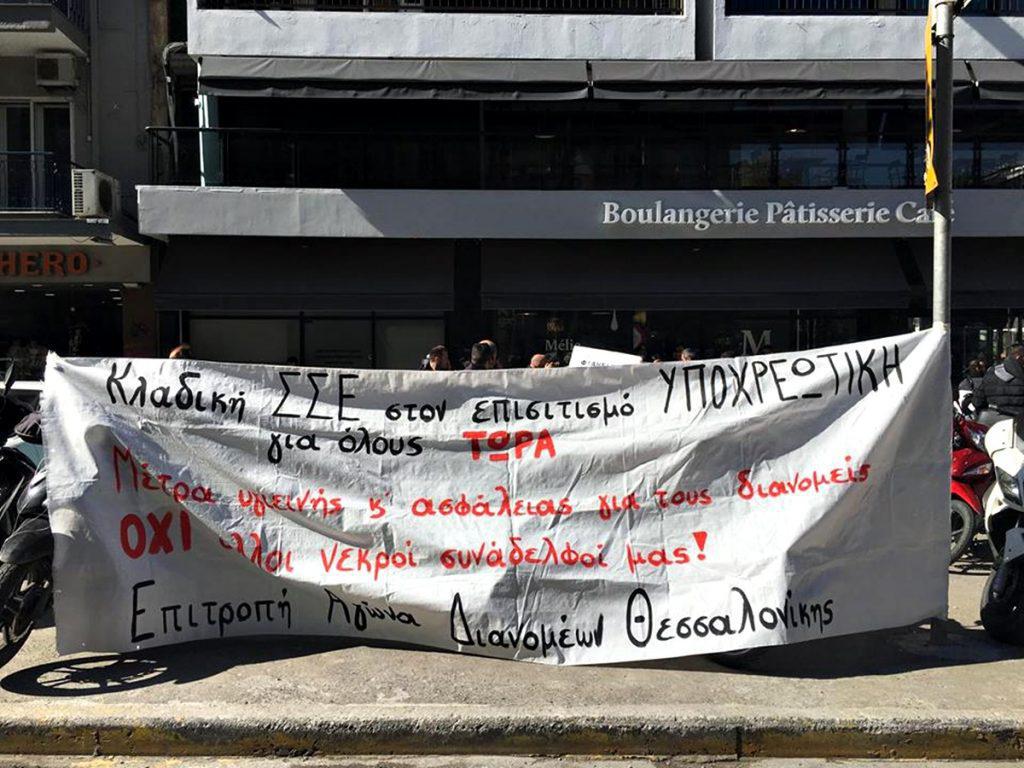 Boulangerie Pâtisserie Café
HERO
Mélie
M
Κλαδική ΣΣΕ στον επισιτισμό ΥΠΟΧΡΕΩΤΙΚΗ
για όλους ΤΩΡΑ
Μέτρα υγιεινής κ' ασφάλειας για τους διανομείς
ΟΧΙ άλλοι νεκροί συνάδελφοί μας!
Επιτροπή Αγώνα Διανομέων Θεσσαλονίκης